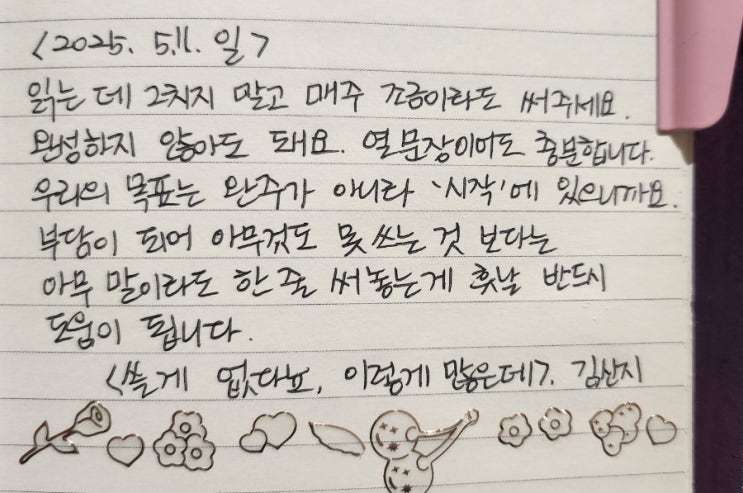 <2025. 5.11. 일>
읽는 데 그치지 말고 매주 조금이라도 써주세요.
완성하지 않아도 돼요. 열 문장이어도 충분합니다.
우리의 목표는 완주가 아니라 '시작'에 있으니까요.
부담이 되어 아무것도 못 쓰는 것 보다는
아무 말이라도 한 줄 써놓는게 훗날 반드시
도움이 됩니다.
<쓸게 없다뇨, 이렇게 많은데?>. 김산지